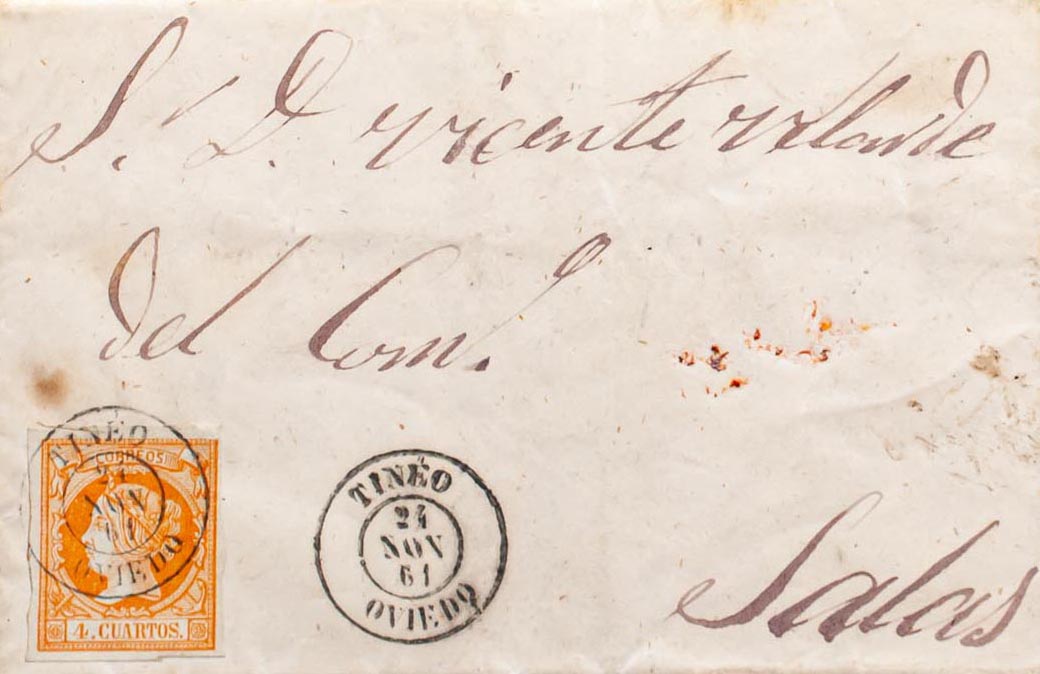 S. D. Vicente Velarde
del Com.º
Salas
TINÉO
24
NOV
61
OVIEDO
TINÉO
CORREOS
24
NOV
61
OVIEDO
4. CUARTOS.